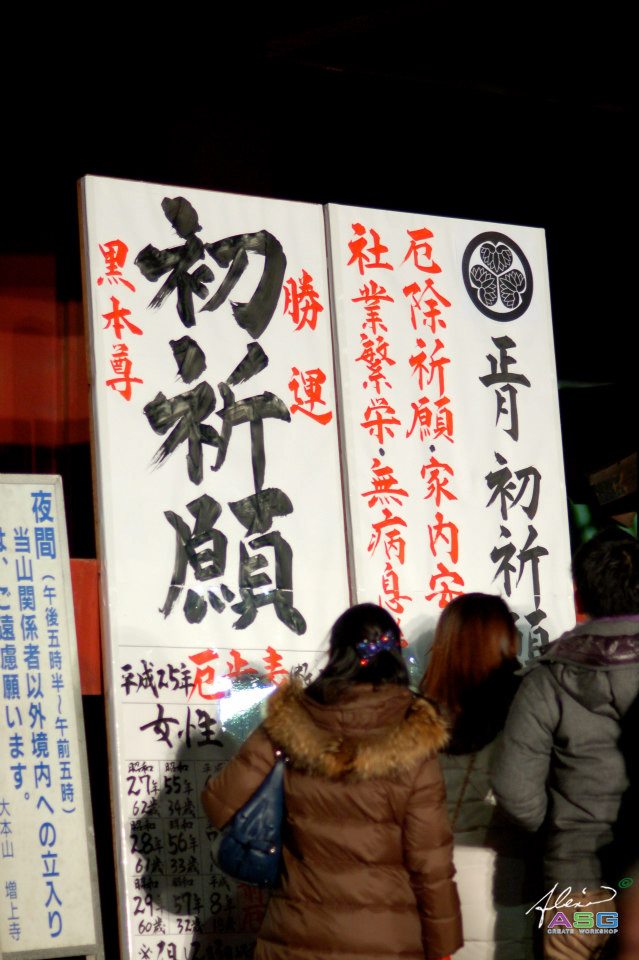 正月初祈願
厄除祈願・家内安
社業繁栄・無病息
勝運
初祈願
黒本尊
平成25年厄
女性
昭和 昭和
27年 55年
62歳 34歳
昭和 昭和
28年 56年
61歳 33歳
昭和 昭和 平成
29年 57年 8年
60歳 32歳
夜間(午後五時半~午前五時)
当山関係者以外境内への立入り
は、ご遠慮願います。
大本山 増上寺
ASG
CREATE WORKSHOP